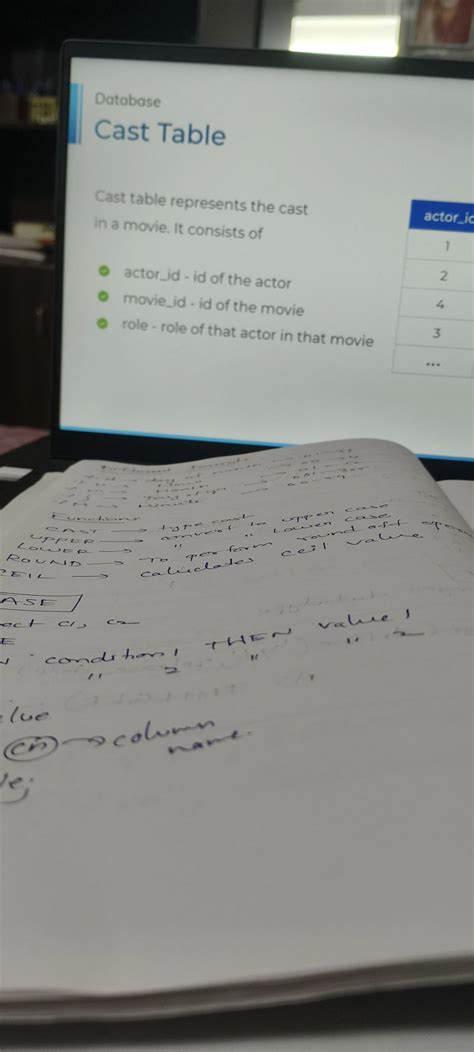 Database
Cast Table
Cast table represents the cast
in a movie. It consists of
actor_id - id of the actor
movie_id - id of the movie
role - role of that actor in that movie
actor_id
1
2
4
3
...
Functions
CAST → typecast
UPPER → convert to upper case
LOWER → " " Lower case
ROUND → To perform round off
CEIL → calculates ceil value
CASE
ect c1, c2
E
N condition1 THEN value1
" 2 " " 2
alue
cn → column
name.
le;